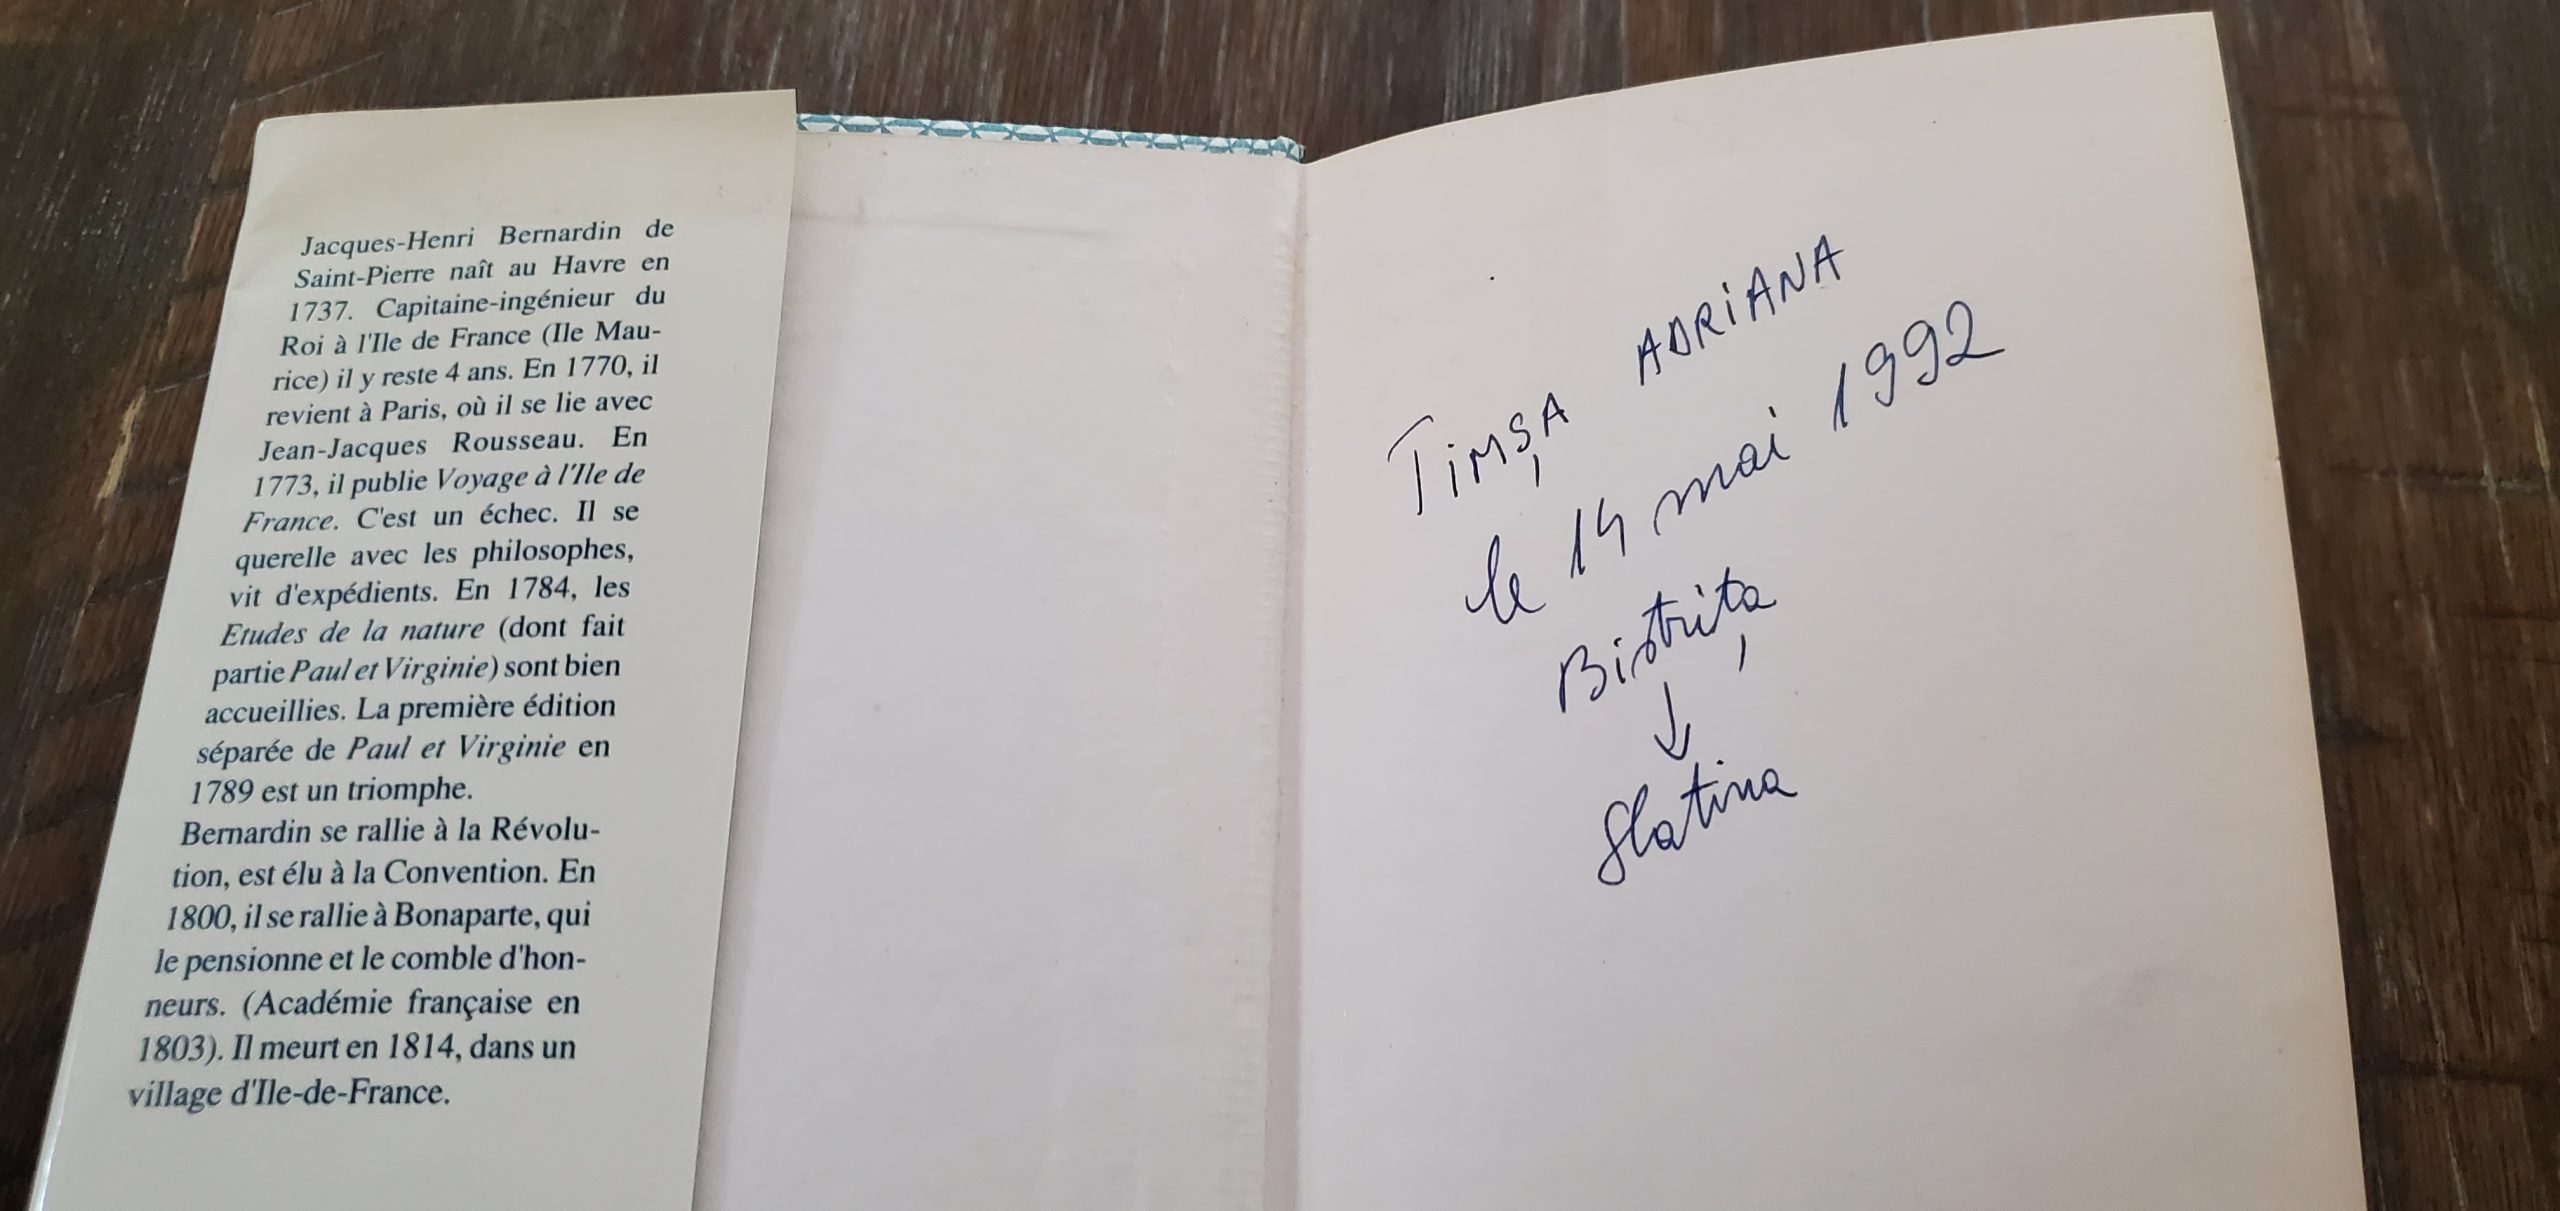 Jacques-Henri Bernardin de
Saint-Pierre naît au Havre en
1737. Capitaine-ingénieur du
Roi à l'Ile de France (Ile Mau-
rice) il y reste 4 ans. En 1770, il
revient à Paris, où il se lie avec
Jean-Jacques Rousseau. En
1773, il publie Voyage à l'Ile de
France. C'est un échec. Il se
querelle avec les philosophes,
vit d'expédients. En 1784, les
Etudes de la nature (dont fait
partie Paul et Virginie) sont bien
accueillies. La première édition
séparée de Paul et Virginie en
1789 est un triomphe.
Bernardin se rallie à la Révolu-
tion, est élu à la Convention. En
1800, il se rallie à Bonaparte, qui
le pensionne et le comble d'hon-
neurs. (Académie française en
1803). Il meurt en 1814, dans un
village d'Ile-de-France.
TiMȘA ADRiANA
le 14 mai 1992
Bistrița
↓
Slatina